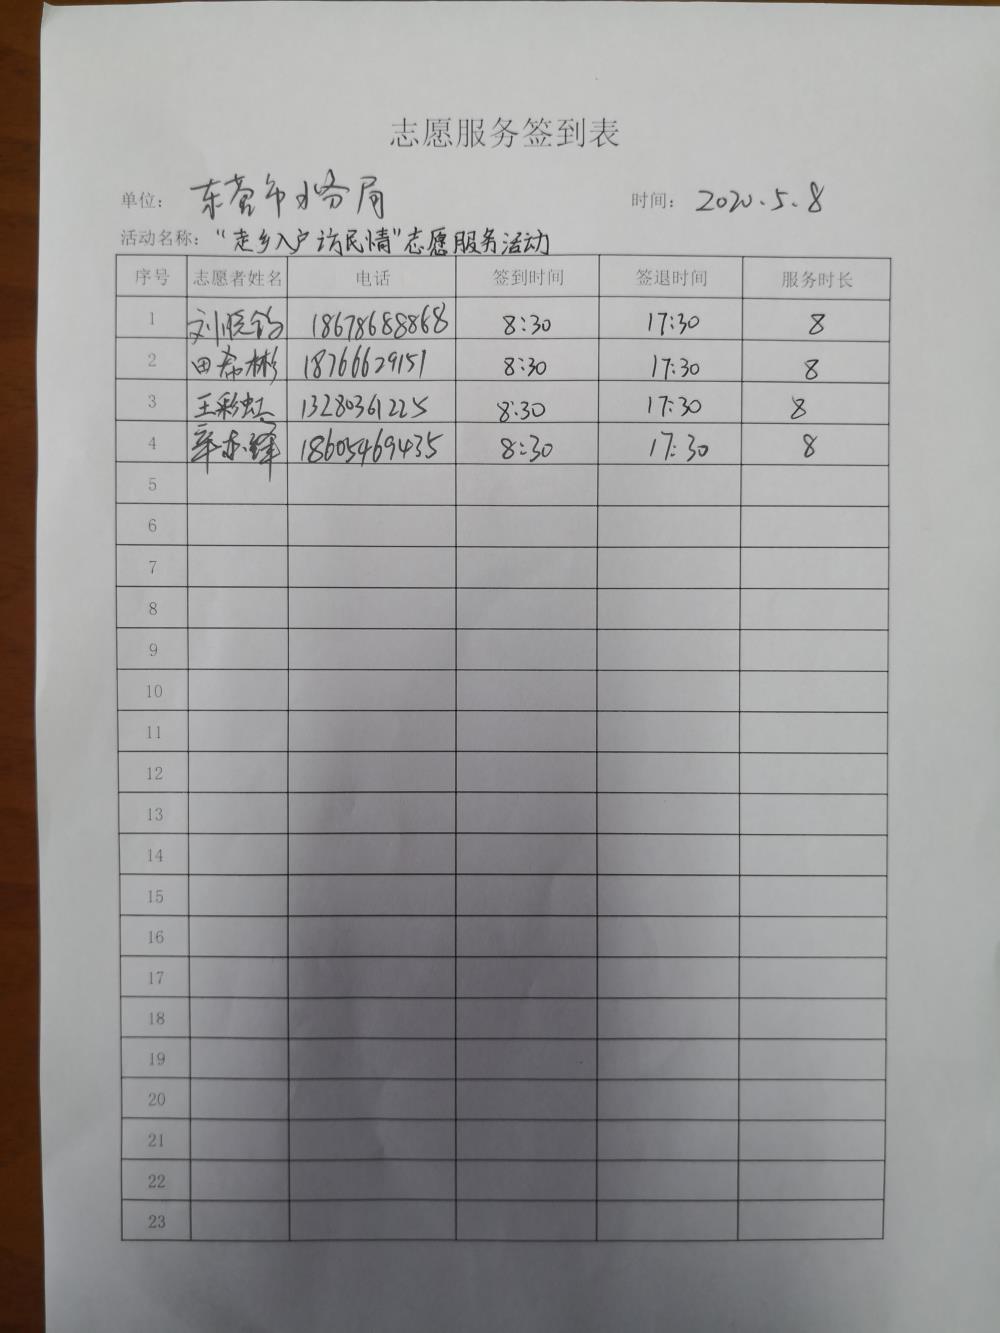 志愿服务签到表
单位: 东营市水务局 时间: 2020.5.8
活动名称: “走乡入户访民情”志愿服务活动
序号 志愿者姓名 电话 签到时间 签退时间 服务时长
1 刘晓钧 18678688868 8:30 17:30 8
2 田希彬 18766629151 8:30 17:30 8
3 王彩虹 13280361225 8:30 17:30 8
4 18605469435 8:30 17:30 8
5
6
7
8
9
10
11
12
13
14
15
16
17
18
19
20
21
22
23